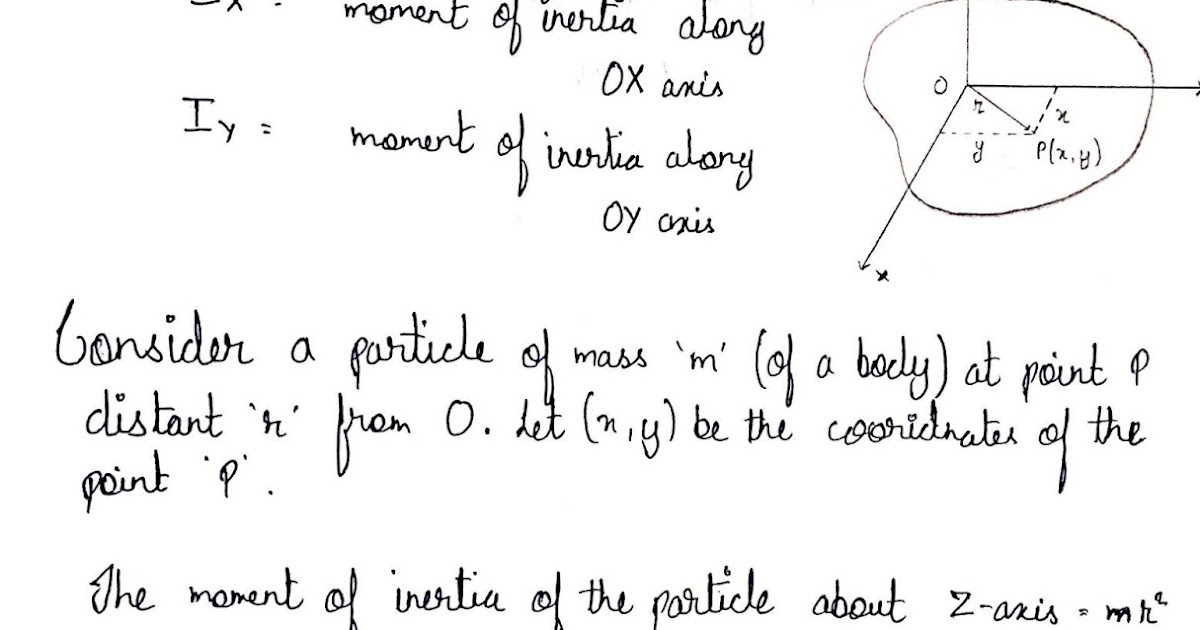 moment of inertia along
OX axis
I_Y = moment of inertia along
OY axis
O
r
x
y
P(x,y)
x
Consider a particle of mass 'm' (of a body) at point P
distant 'r' from O. Let (x,y) be the cooridnates of the
point 'P'.
The moment of inertia of the particle about Z-axis = mr²